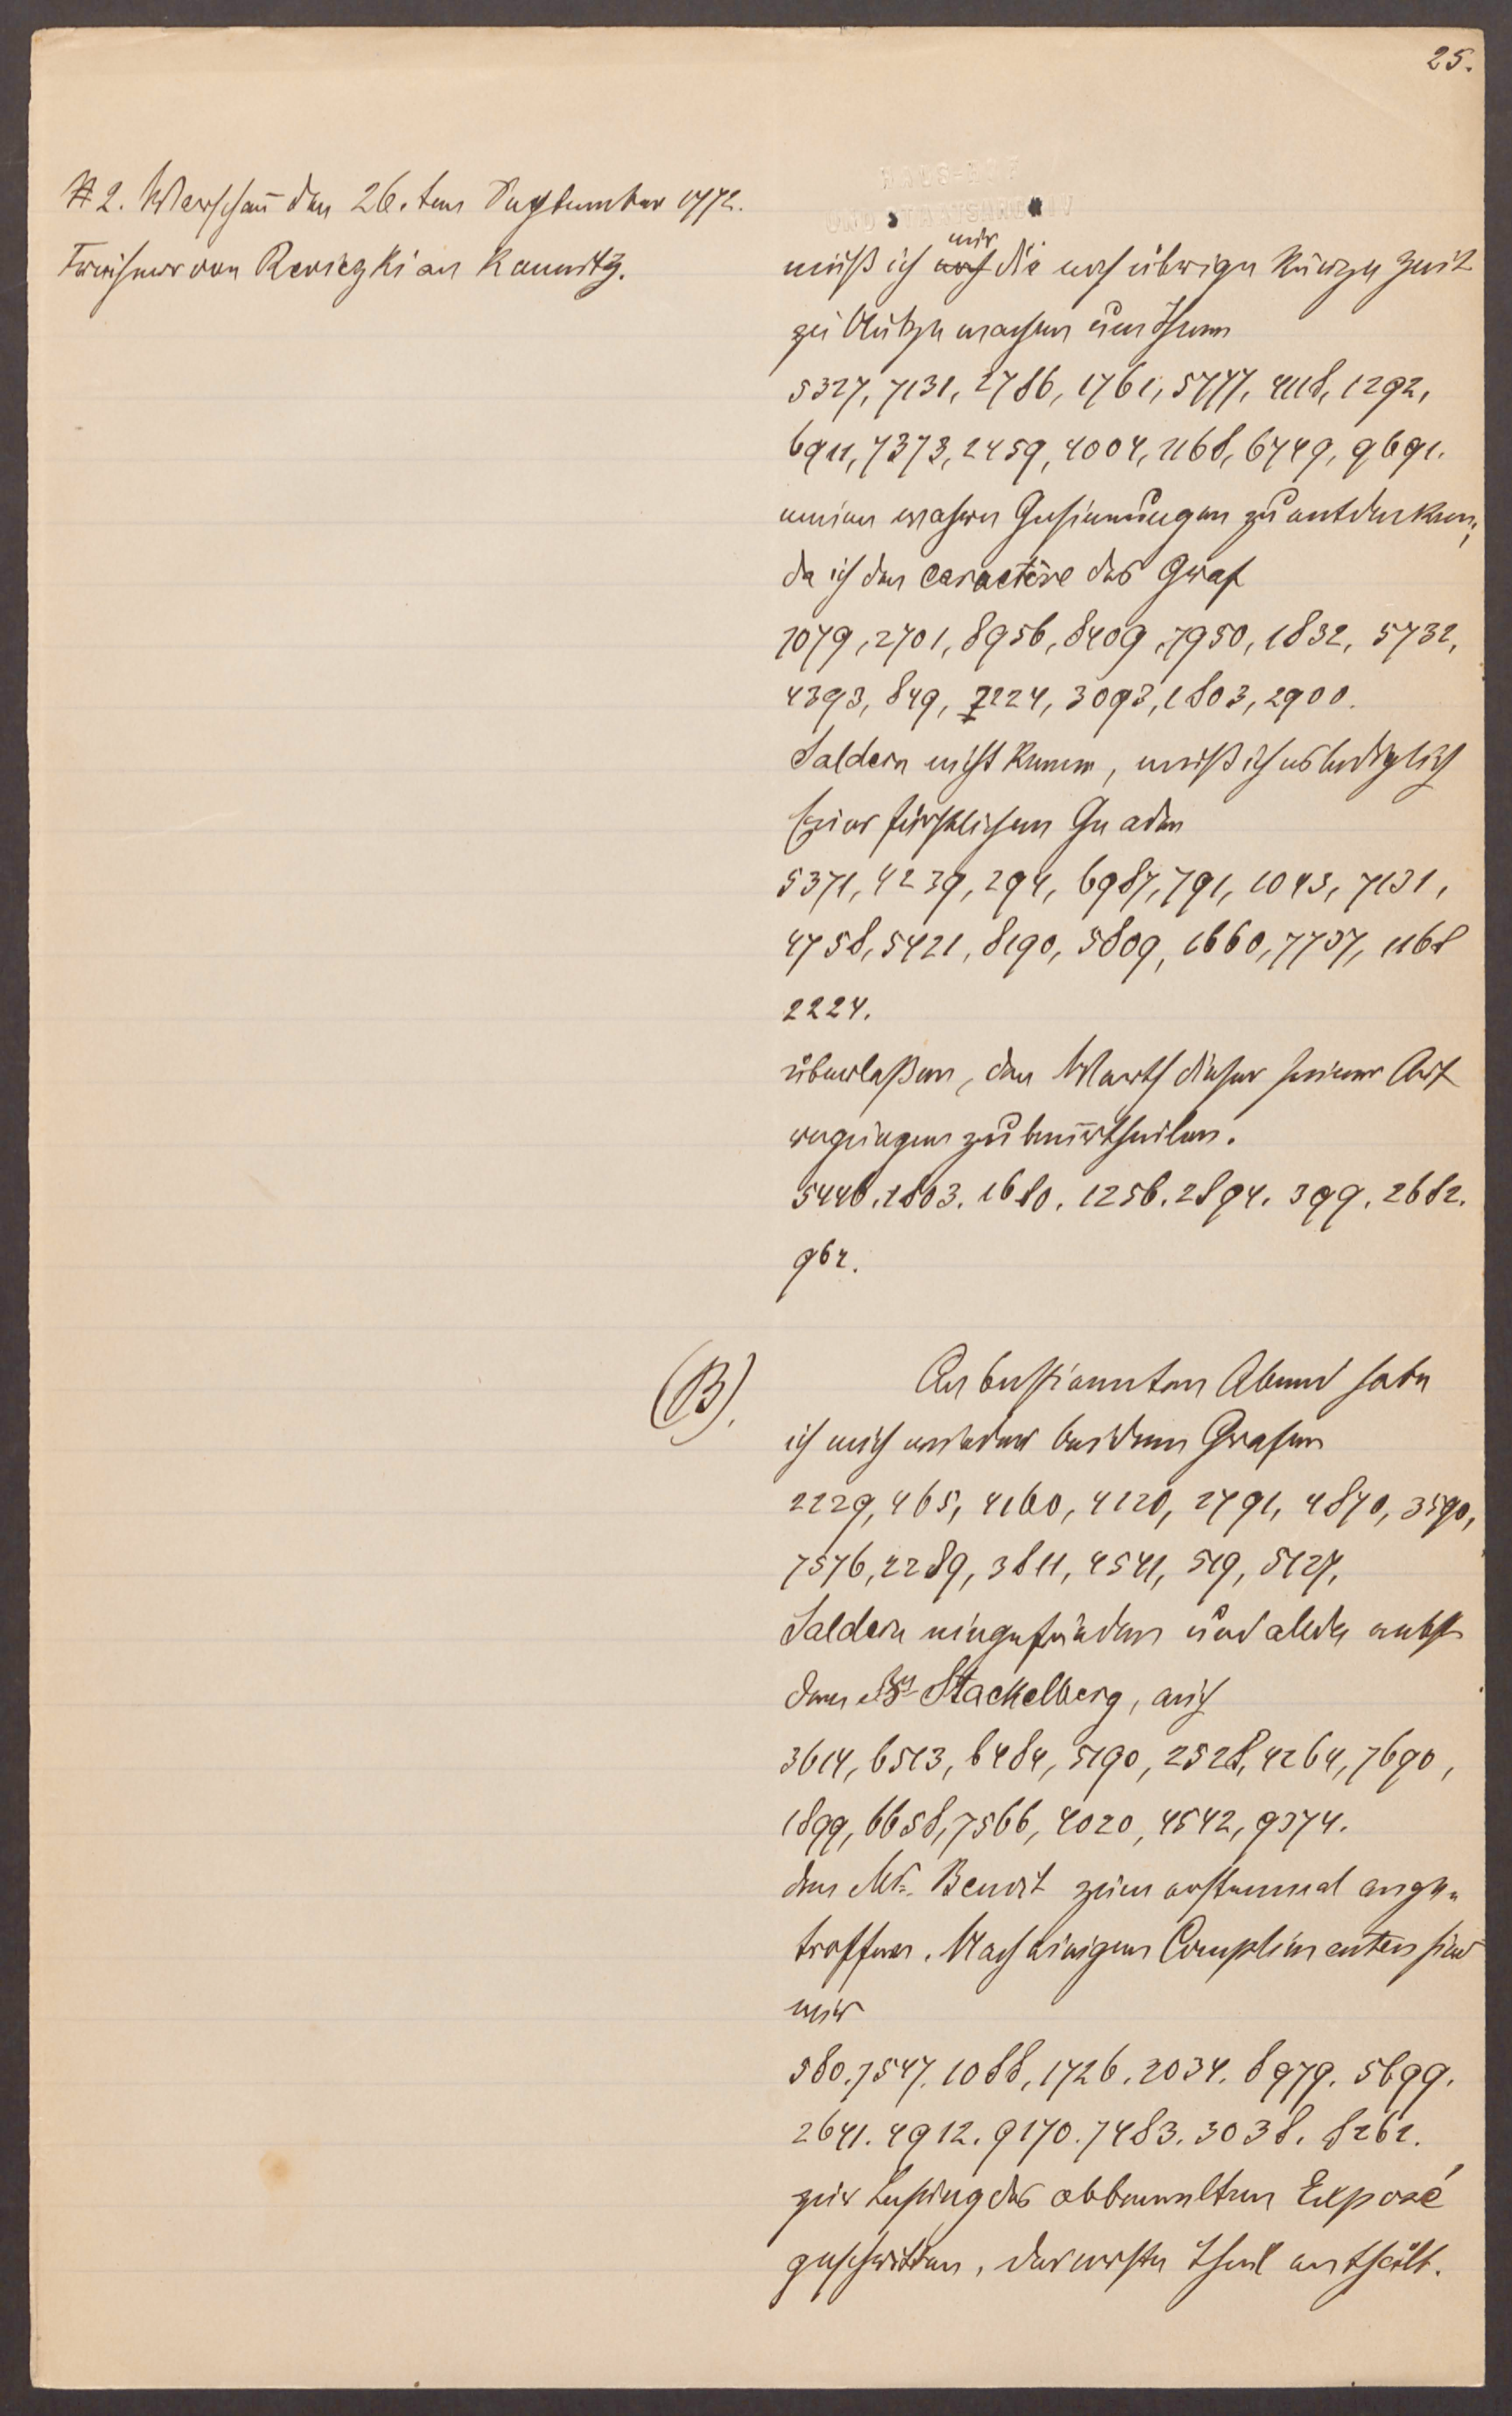 25.
HAUS-HOF
UND STAATSARCHIV
# 2. Warschau den 26.ten September 1772.
Freiherr von Reviczki an Kaunitz.
mir
muß ich noch die noch übrige kurze Zeit
zu Nutze machen um Ihnen
5327, 7131, 2786, 1761, 5777, 4118, 1292,
6911, 7373, 2459, 4004, 1168, 6749, 9691.
meine wahren Gesinnungen zu entdecken;
da ich den Caractère des Graf
1079, 2701, 8956, 8409, 7950, 1832, 5732,
4393, 849, 7224, 3093, 1803, 2900.
Saldern nicht kenne, muß ich es lediglich
Euer fürstlichen Gnaden
5371, 4239, 294, 6987, 791, 1043, 7131,
4758, 5421, 8190, 5809, 1660, 7737, 1168
2224.
überlaßen, den Werth dieser seiner
zu beurtheilen.
5446. 1803. 1680. 1256. 2894. 399. 2682.
962.
(B).
An bestimmten Abend habe
ich mich wieder bei dem Grafen
2229, 465, 4160, 4120, 2791, 4870, 3590,
7576, 2289, 3811, 4541, 519, 5127,
Saldern eingefunden und allda nebst
dem Stackelberg, auch
3614, 6513, 6484, 5190, 2528, 4264, 7690,
1899, 6658, 7566, 4020, 4542, 9374.
den Mr. Benoit zum erstenmal ange-
troffen. Nach einigen Complimenten sind
wir
580. 7547. 1088. 1726. 2034. 8979. 5699.
2641. 4912. 9170. 7483. 3038. 8262.
zur Lesung des obbemelten Exposé
geschritten, der erste Theil enthält.